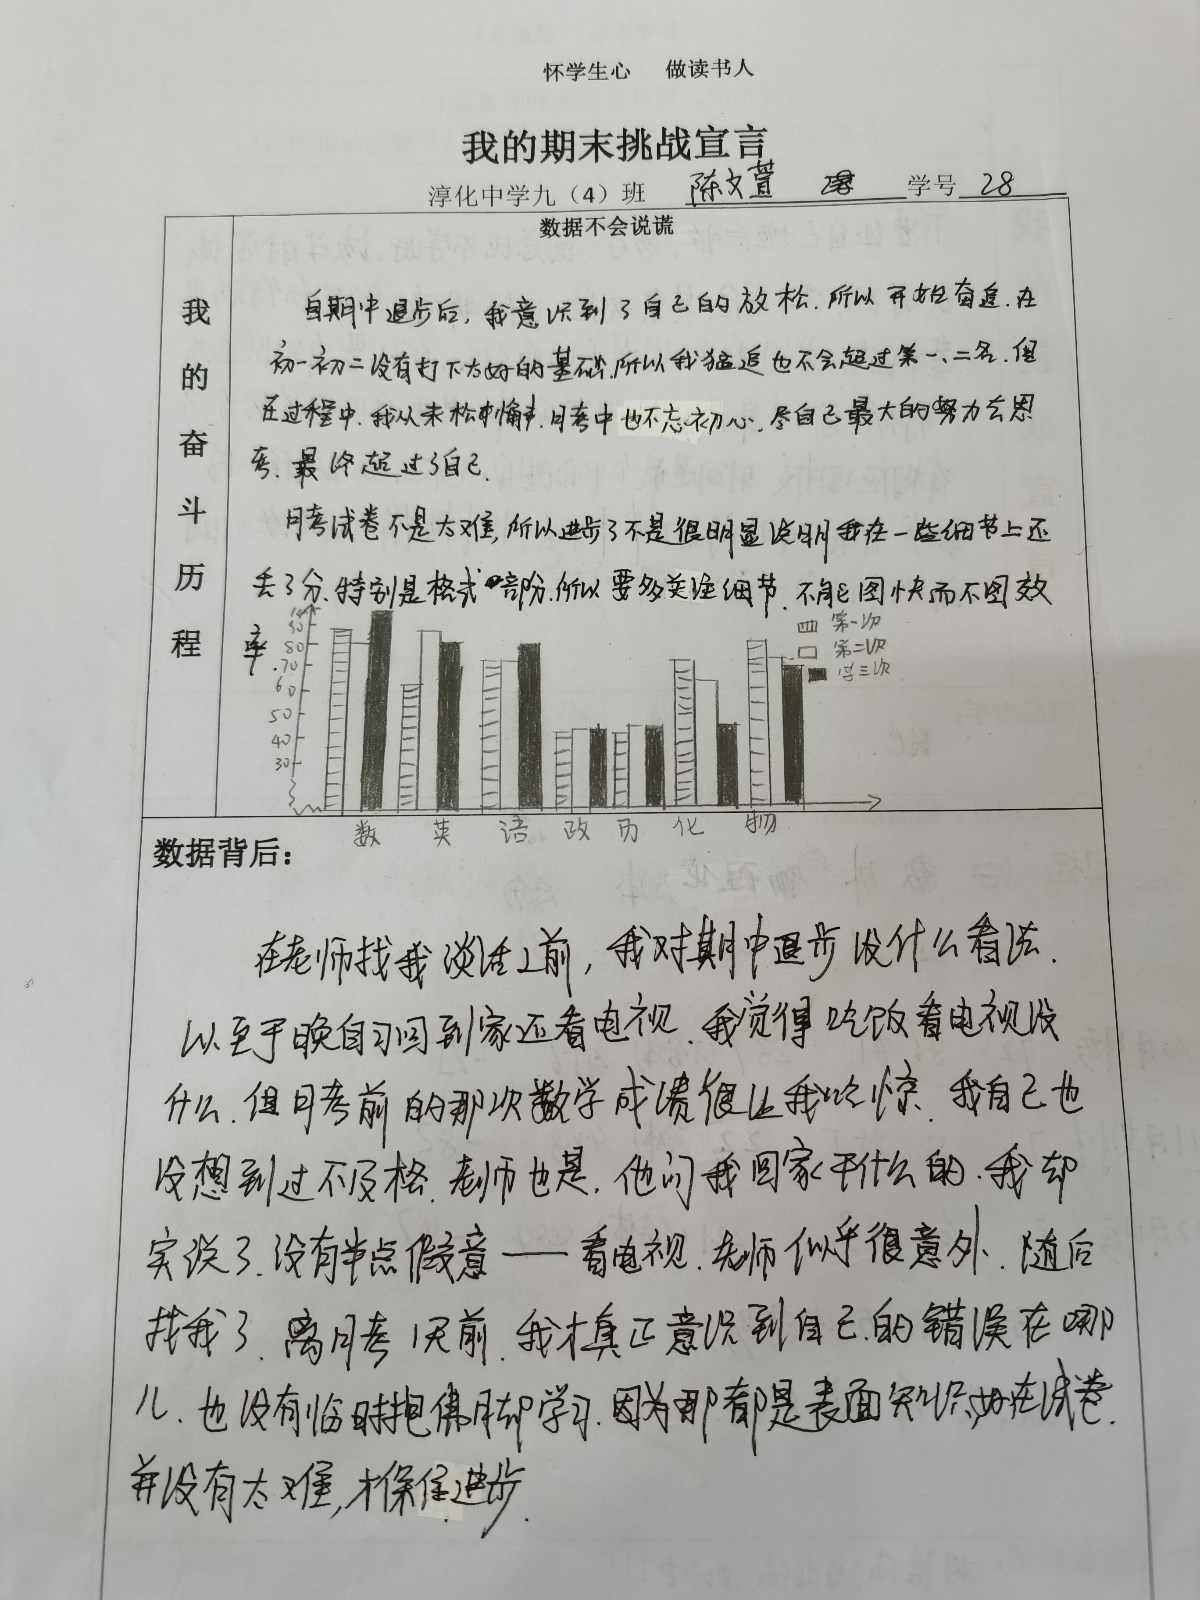 怀学生心 做读书人
我的期末挑战宣言
淳化中学九（4）班 陈文萱 学号 28
数据不会说谎
我的奋斗历程
自期中退步后，我意识到了自己的放松．所以开始奋追．在
初一初二没有打下太好的基础，所以我猛追也不会超过第一、二名．但
在过程中．我从未松懈．月考中也不忘初心．尽自己最大的努力去思
考．最终超过了自己．
月考试卷不是太难，所以进步了不是很明显说明我在一些细节上还
丢了分．特别是格式部分．所以要多关注细节．不能图快而不图效
率
90
80
70
60
50
40
30
第一次
第二次
第三次
数 英 语 政 历 化 物
数据背后：
在老师找我谈话之前，我对期中退步没什么看法．
以至于晚自习回到家还看电视．我觉得吃饭看电视没
什么．但月考前的那次数学成绩很让我吃惊．我自己也
没想到过不及格．老师也是．他问我回家干什么的．我却
实说了．没有半点假意——看电视．老师似乎很意外．随后
找我了．离月考1天前．我才真正意识到自己的错误在哪
儿．也没有临时抱佛脚学习．因为那都是表面知识，好在试卷．
并没有太难，才保住进步．